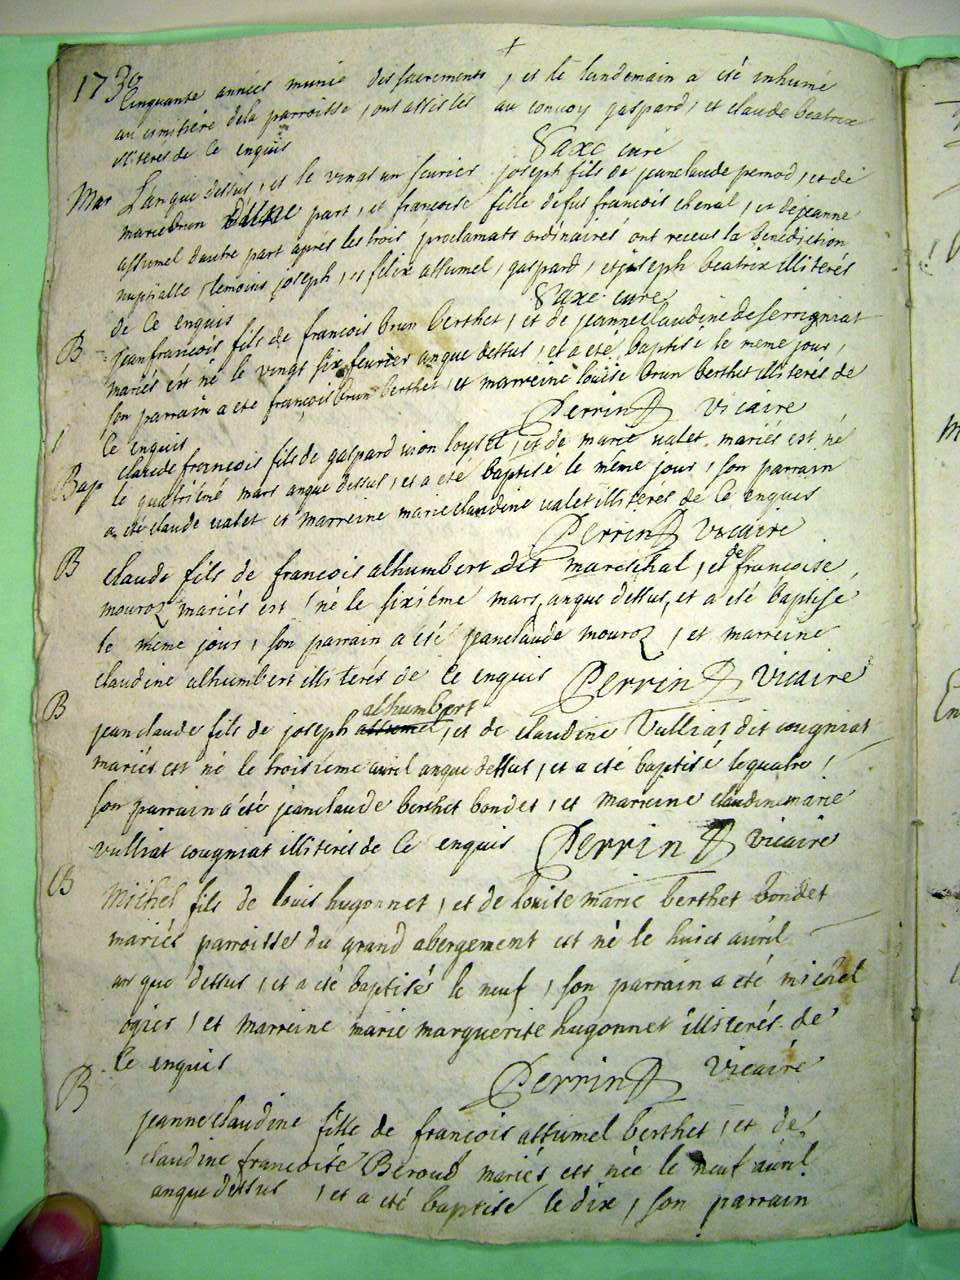 1730
Cinquante années munie des sacrements, et le landemain a été inhumé
au cimitiére de la parroisse, ont assistés au convoy gaspard, et claude beatrix
illiterés de ce enquis
Saxe curé
Mar L'an que dessus, et le vingt un feurier joseph fils de jeanclaude pernod, et de
marie brun d'une part, et francoise fille de fus francois chenal, et de jeanne
assumel dautre part aprés les trois proclamats ordinaires ont receus la benediction
nuptialle, temoins joseph, et felix assumel, gaspard, et joseph beatrix illiterés
de ce enquis
Saxe curé
B jeanfrancois fils de francois brun berthet, et de jeanneclaudine de serrigniat
mariés est né le vingt six feurier anque dessus, et a eté baptisé le meme jour,
son parrain a eté francois brun berthet, et marreine loüise brun berthet illiterés de
ce enquis
Perrin vicaire
Bap claude francois fils de gaspard uion loyset, et de marie valet mariés est né
le quatriémé mars anque dessus, et a eté baptisé le méme jour, son parrain
a eté claude valet et marreine marieclaudine valet illiterés de ce enquis
Perrin vicaire
B claude fils de francois alhumbert dit mareschal, et de francoise
mouroz mariés est né le sixiéme mars, anque dessus, et a eté baptisé
le méme jour, son parrain a eté jeanclaude mouroz, et marreine
claudine alhumbert illiterés de ce enquis Perrin vicaire
alhumbert
B jeanclaude fils de joseph assumel, et de claudine Vulliat dit cougniat
mariés est né le troisieme avril anque dessus, et a eté baptisé lequatre,
son parrain a été jeanclaude berthet bondet, et marreine claudinemarie
vulliat cougniat illiterés de ce enquis Perrin vicaire
B Michel fils de loüis hugonnet, et de loüise marie berthet bondet
mariés parroisse du grand abergement est né le huict avril
an que dessus, et a été baptisés le neuf, son parrain a eté michel
ogier, et marreine marie marguerite hugonnet illiterés de
ce enquis
Perrin vicaire
B jeanneclaudine fille de francois assumel berthet, et de
claudine francoise Beroud mariés est née le neuf avril
anque dessus, et a eté baptisé le dix, son parrain